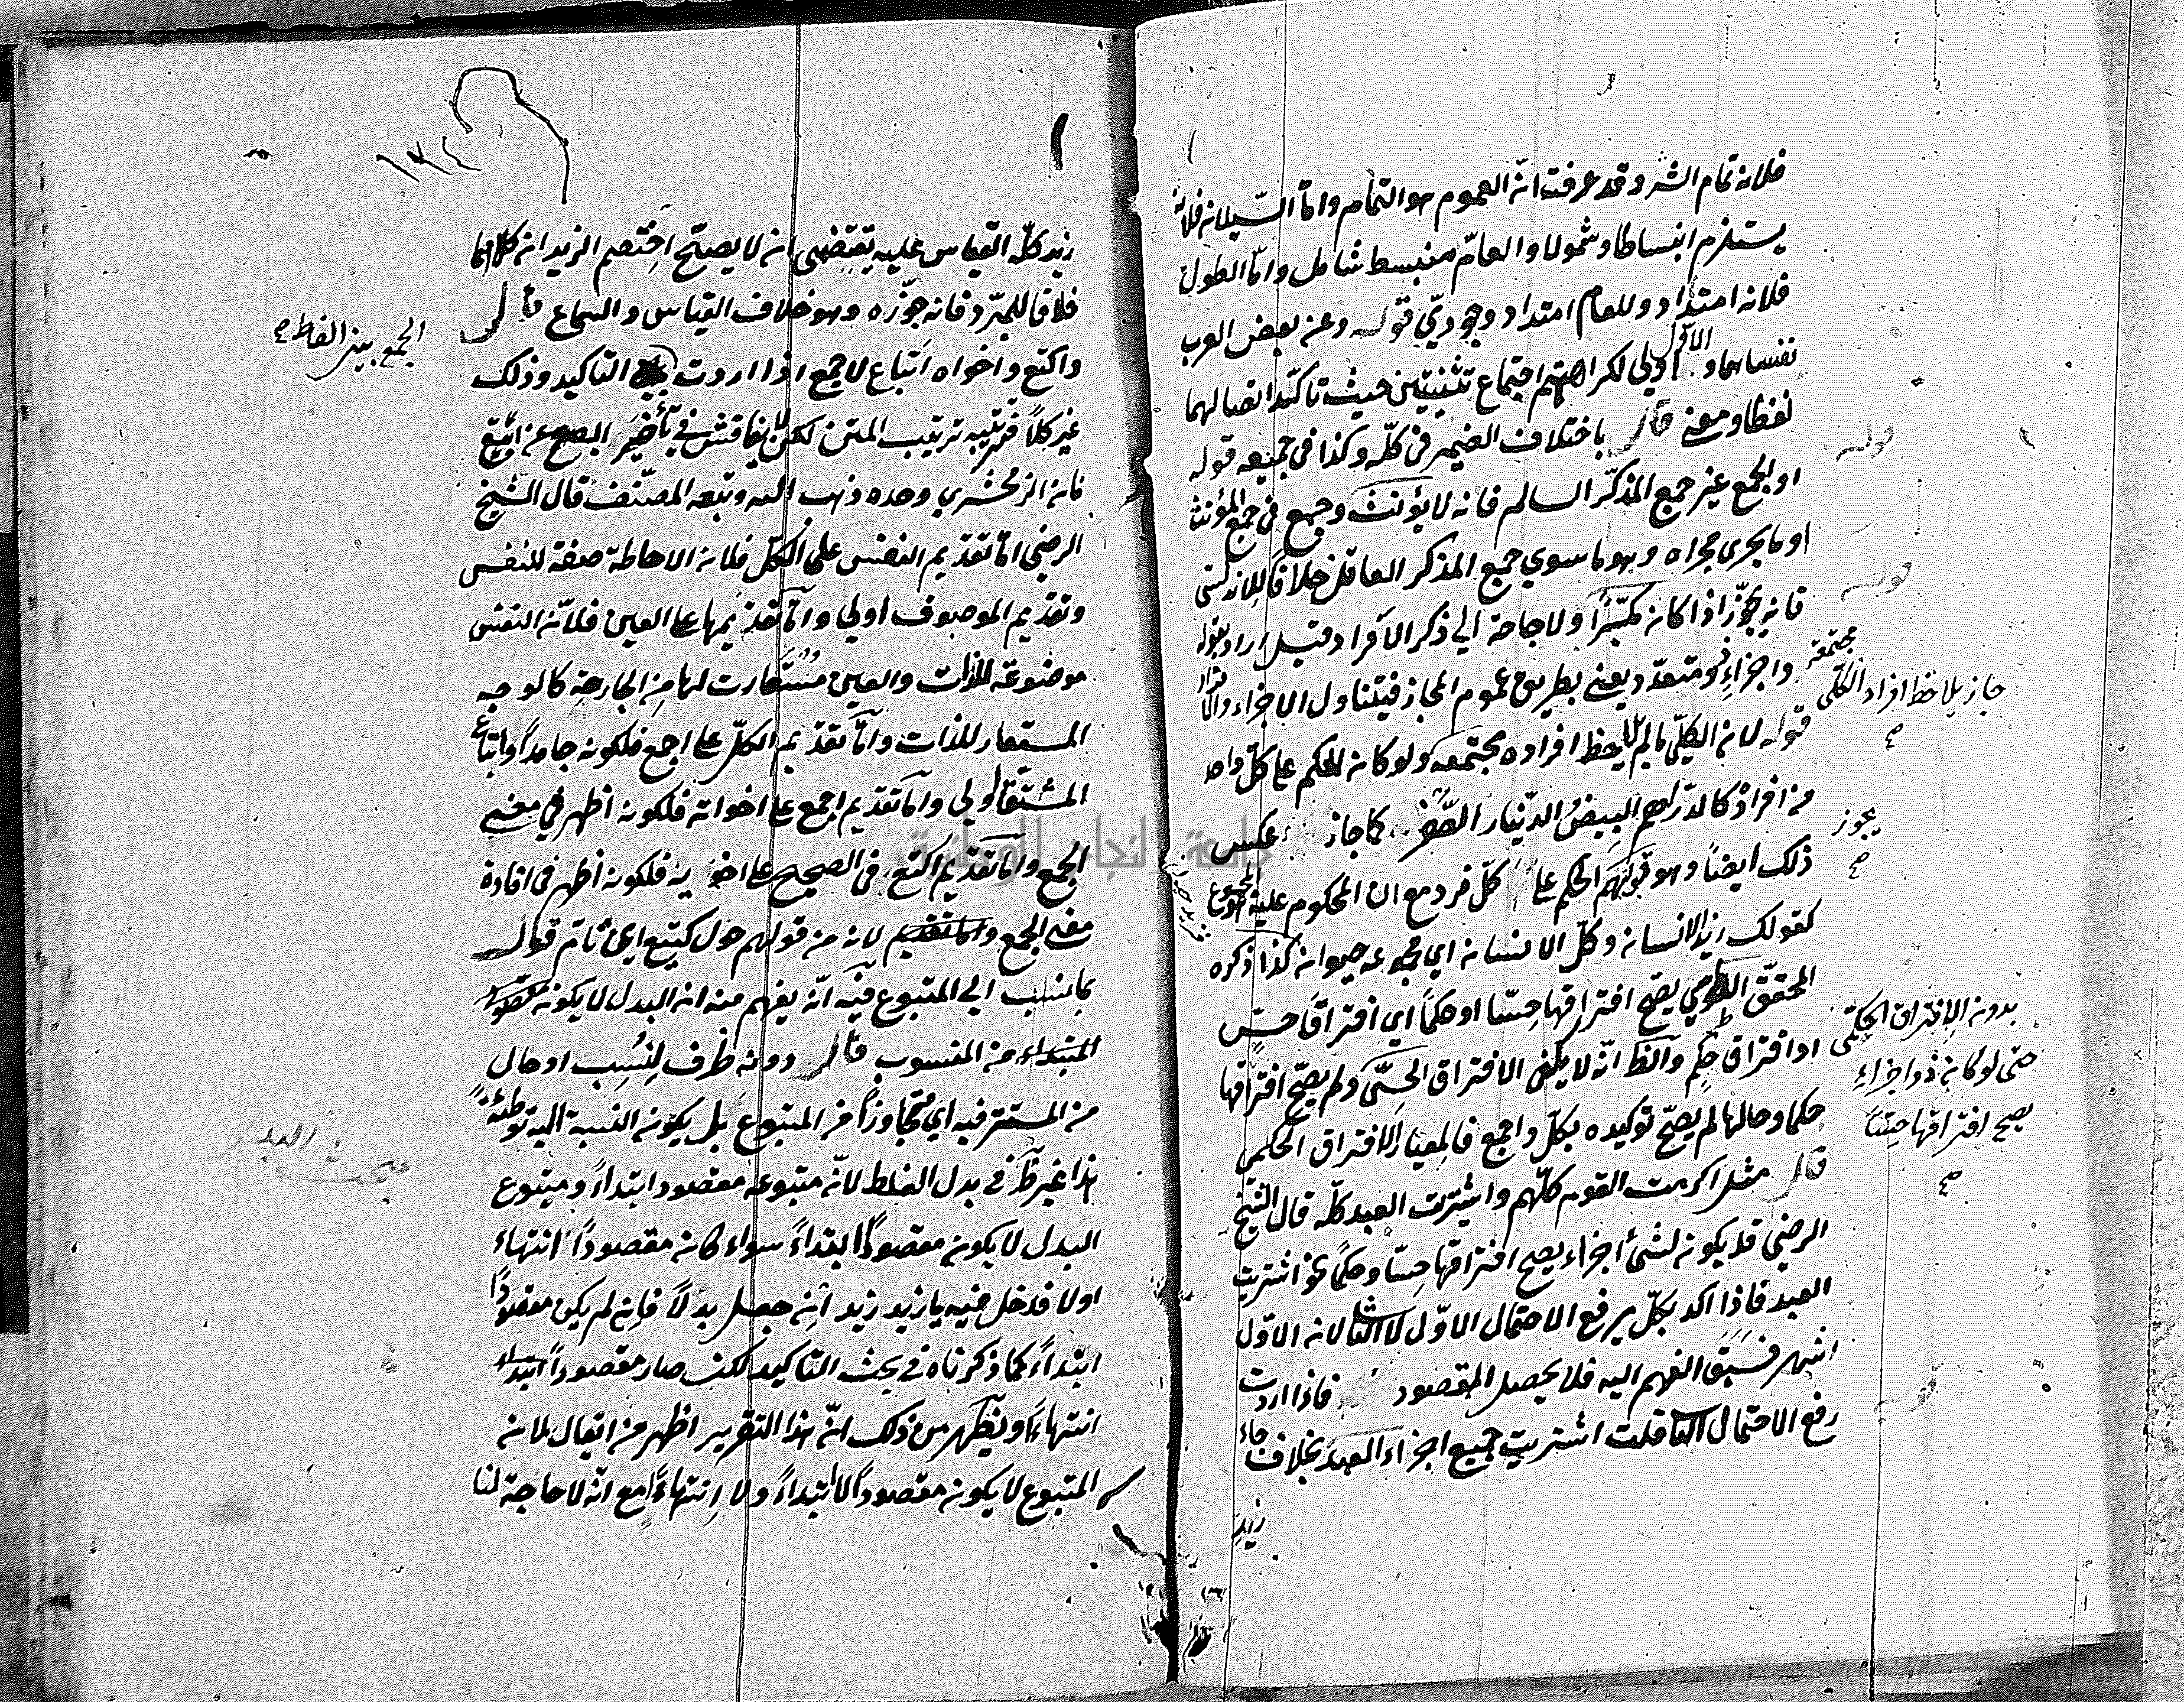 فلانه تمام الشر وقد عرفت ان العموم هو التمام واما السيلان فلانه
يستلزم انبساطا وشمولا والعام منبسط شامل واما الطول
فلانه امتداد وللعام امتداد وجودي قوله وعن بعض العرب
نفساهما والاول اولي لكراهتهم اجتماع تثنيتين حيث تأكد اتصالهما
لفظا ومعنى قال باختلاف الضمير في كله وكذا في جميعه قوله
او الجمع غير جمع المذكر السالم فانه لا يؤنث وجمع في جمع المؤنث
او ما يجري مجراه وهو ما سوي جمع المذكر العاقل خلافا للاندلسي
فانه يجوز اذا كان مكسرا ولا حاجة الي ذكر الافراد قيل اراد بقوله
واجزاء ومتعدد يعني بطريق عموم المجاز فيتناول الاجزاء والافراد
قوله لان الكلي ما لم يلاحظ افراده مجتمعة ولو كان الحكم على كل واحد
من افراده كالدراهم البيض الدينار الصفر كما جاز عكس
ذلك ايضا وهو قولهم الحكم على كل فرد مع ان المحكوم عليه المجموع
كقولك زيد الانسان وكل الانسان اي مجموعه حيوان كذا ذكره
المحقق الطوسي يصح افتراقها حسا او حكما اي افتراقا حس
او افتراق حكم والظ انه لا يكفي الافتراق الحسي ولم يصح افتراقها
حكما وحالها لم يصح توكيده بكل واجمع فالمعيار الافتراق الحكمي
قال مثل اكرمت القوم كلهم واشتريت العبد كله قال الشيخ
الرضي قد يكون لشئ اجزاء يصح افتراقها حسا وحكما نحو اشتريت
العبد فاذا اكد بكل يرفع الاحتمال الاول لا الثا لان الاول
اشهر فسبق الفهم اليه فلا يحصل المقصود فاذا اردت
رفع الاحتمال الثا قلت اشتريت جميع اجزاء العبد بخلاف جاء
زيد
قوله
قوله
مجتمعة
جاز يلاحظ افراد الكلي
صح
يجوز
صح
بدون الافتراق الحكمي
حتى لو كان ذو اجزاء
يصح افتراقها حسا
صح
زيد كله القياس عليه يقتضي ان لا يصح اختصم الزيدان كلاهما
خلافا للمبرد فانه جوزه وهو خلاف القياس والسماع قال
واكتع واخواه اتباع لاجمع اذا اردت التأكيد وذلك
غير كلا فترتيبه ترتيب المتن لكن يناقش في تأخير ابصع عن ابتع
فان الزمخشري وحده ذهب اليه وتبعه المصنف قال الشيخ
الرضي اما تقديم النفس على الكل فلان الاحاطة صفة للنفس
وتقديم الموصوف اولي واما تقديمها على العين فلان النفس
موضوعة للذات والعين مستعارت لها من الجارحة كالوجه
المستعار للذات واما تقديم الكل على اجمع فلكونه جامدا واتباع
المشتق اولي واما تقديم اجمع على اخواته فلكونه اظهر في معنى
الجمع واما تقديم اكتع في الصحيح على اخويه فلكونه اظهر في افادة
معنى الجمع واما تقديم لانه من قولهم حول كتيع اي تام قوله
بما نسب الي المتبوع فيه انه يفهم منه ان البدل لا يكون مقصودا
المبتداء من المنسوب قال دونه ظرف لنسب او حال
من المستتر فيه اي متجاوزا من المتبوع بل يكون النسبة اليه توطئة
هذا غير ظ في بدل الغلط لانه متبوعه مقصود ابتداء ومتبوع
البدل لا يكون مقصودا ابتداء سواء كان مقصودا انتهاء
اولا فدخل فيه يا زيد زيد ان جعل بدلا فانه لم يكن مقصودا
ابتداء كما ذكرناه في بحث التأكيد لكن صار مقصودا ابتداء
انتهاء ويظهر من ذلك ان هذا التقرير اظهر من ان يقال لان
المتبوع لا يكون مقصودا لا ابتداء ولا انتهاء مع انه لا حاجة لنا
الجمع بين الفاظ صح
مبحث البدل
جامعة النجاح الوطنية